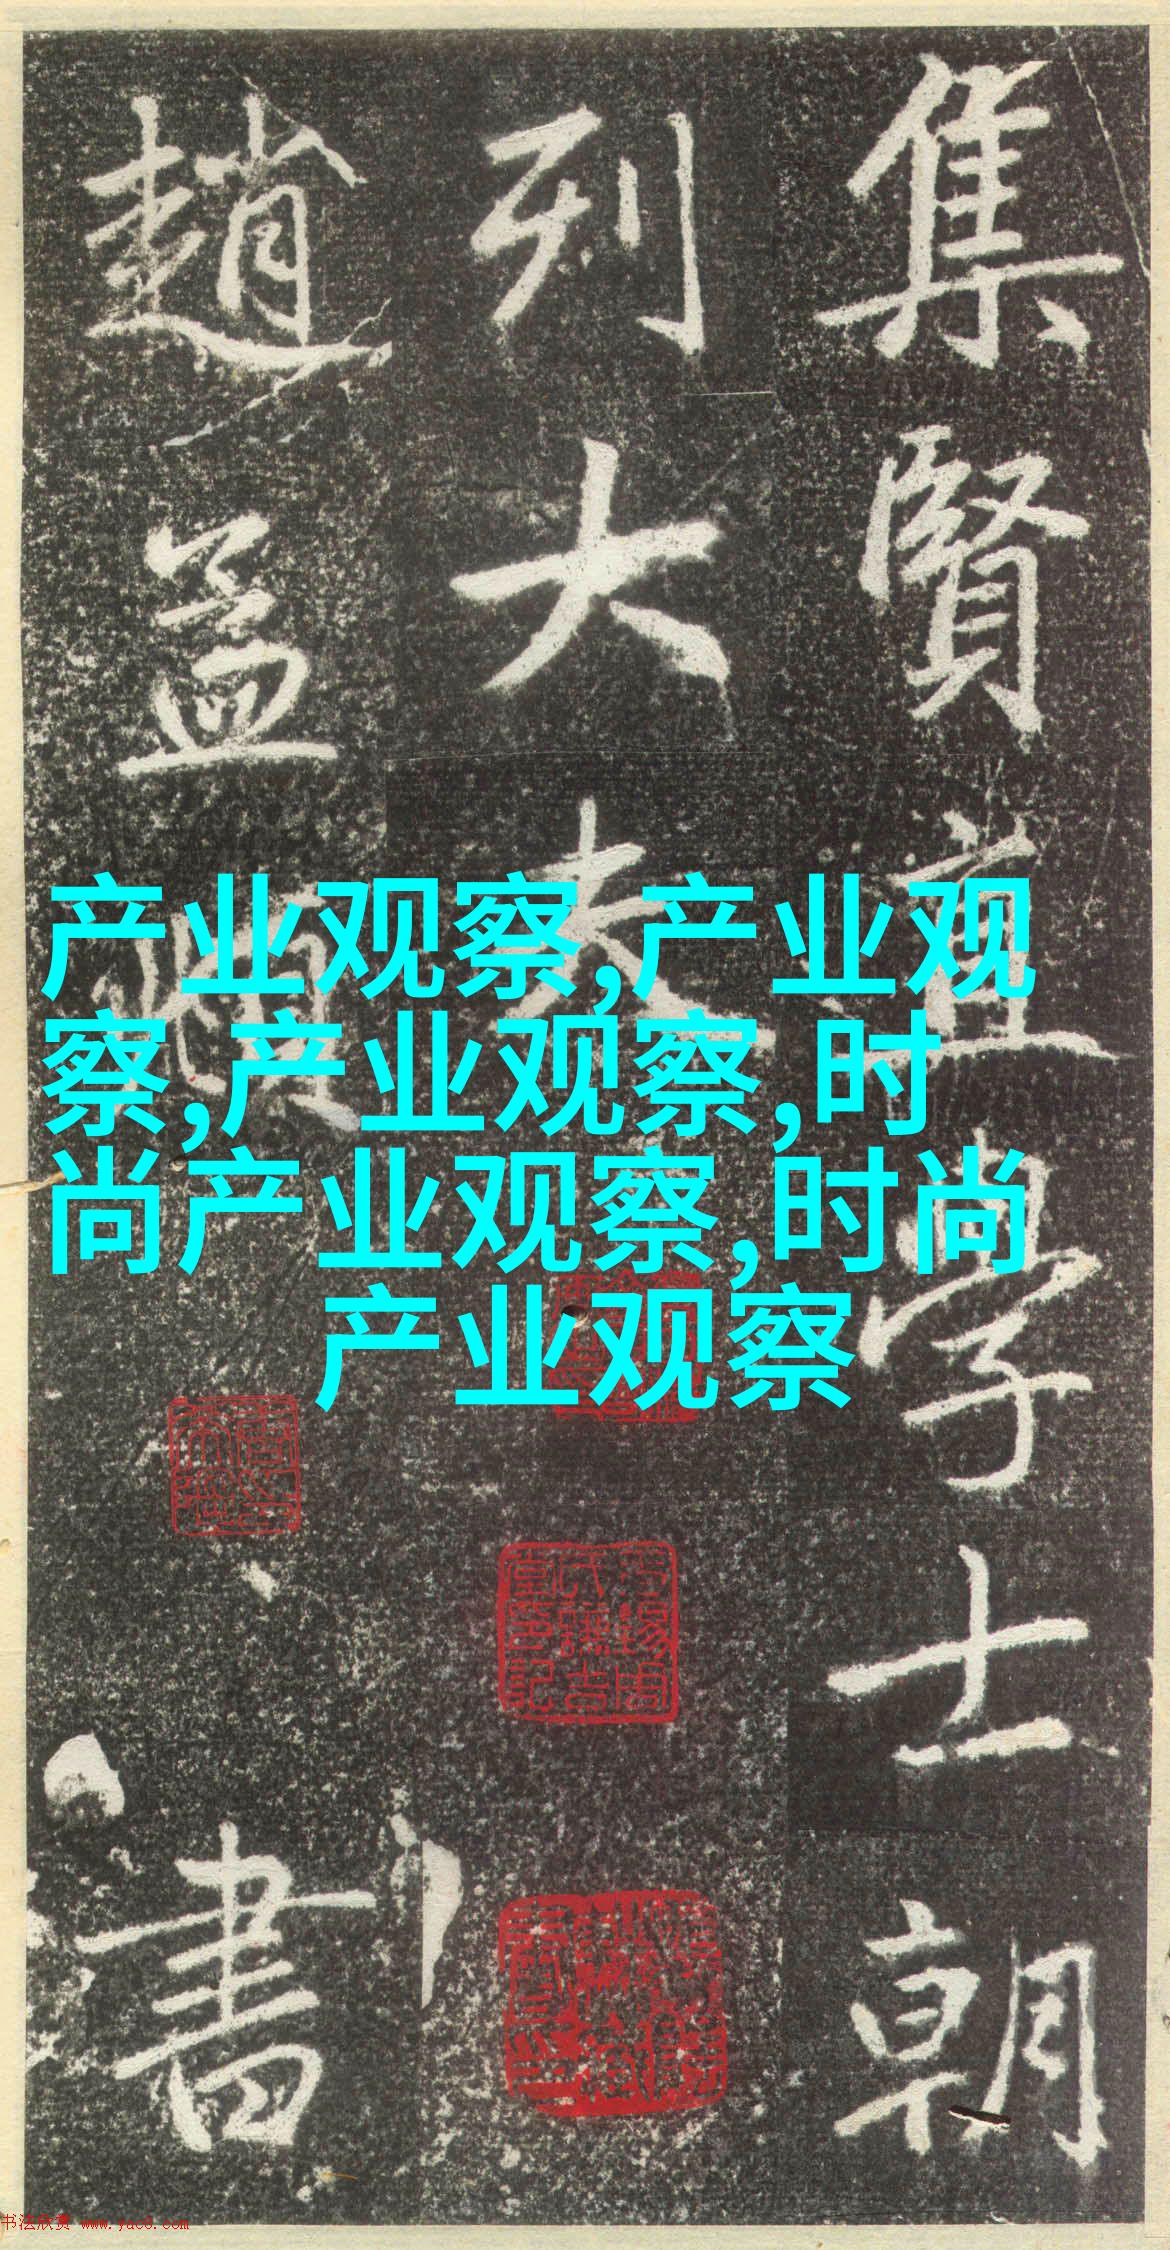 集賢直學士朝
列大夫
趙孟頫書
产业观察,产业观
察,产业观察,时
尚产业观察,时尚
产业观察
书法欣赏 www.yac8.com